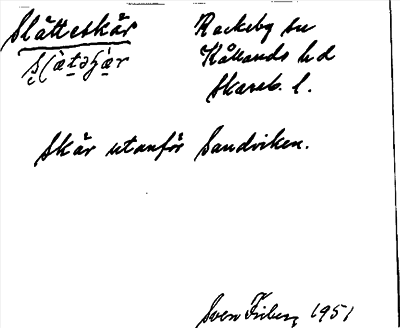 Slätteskär Rackeby sn
Kållands hd
Skarab. l.
Skär utanför Sandviken.
Sven Friberg 1951